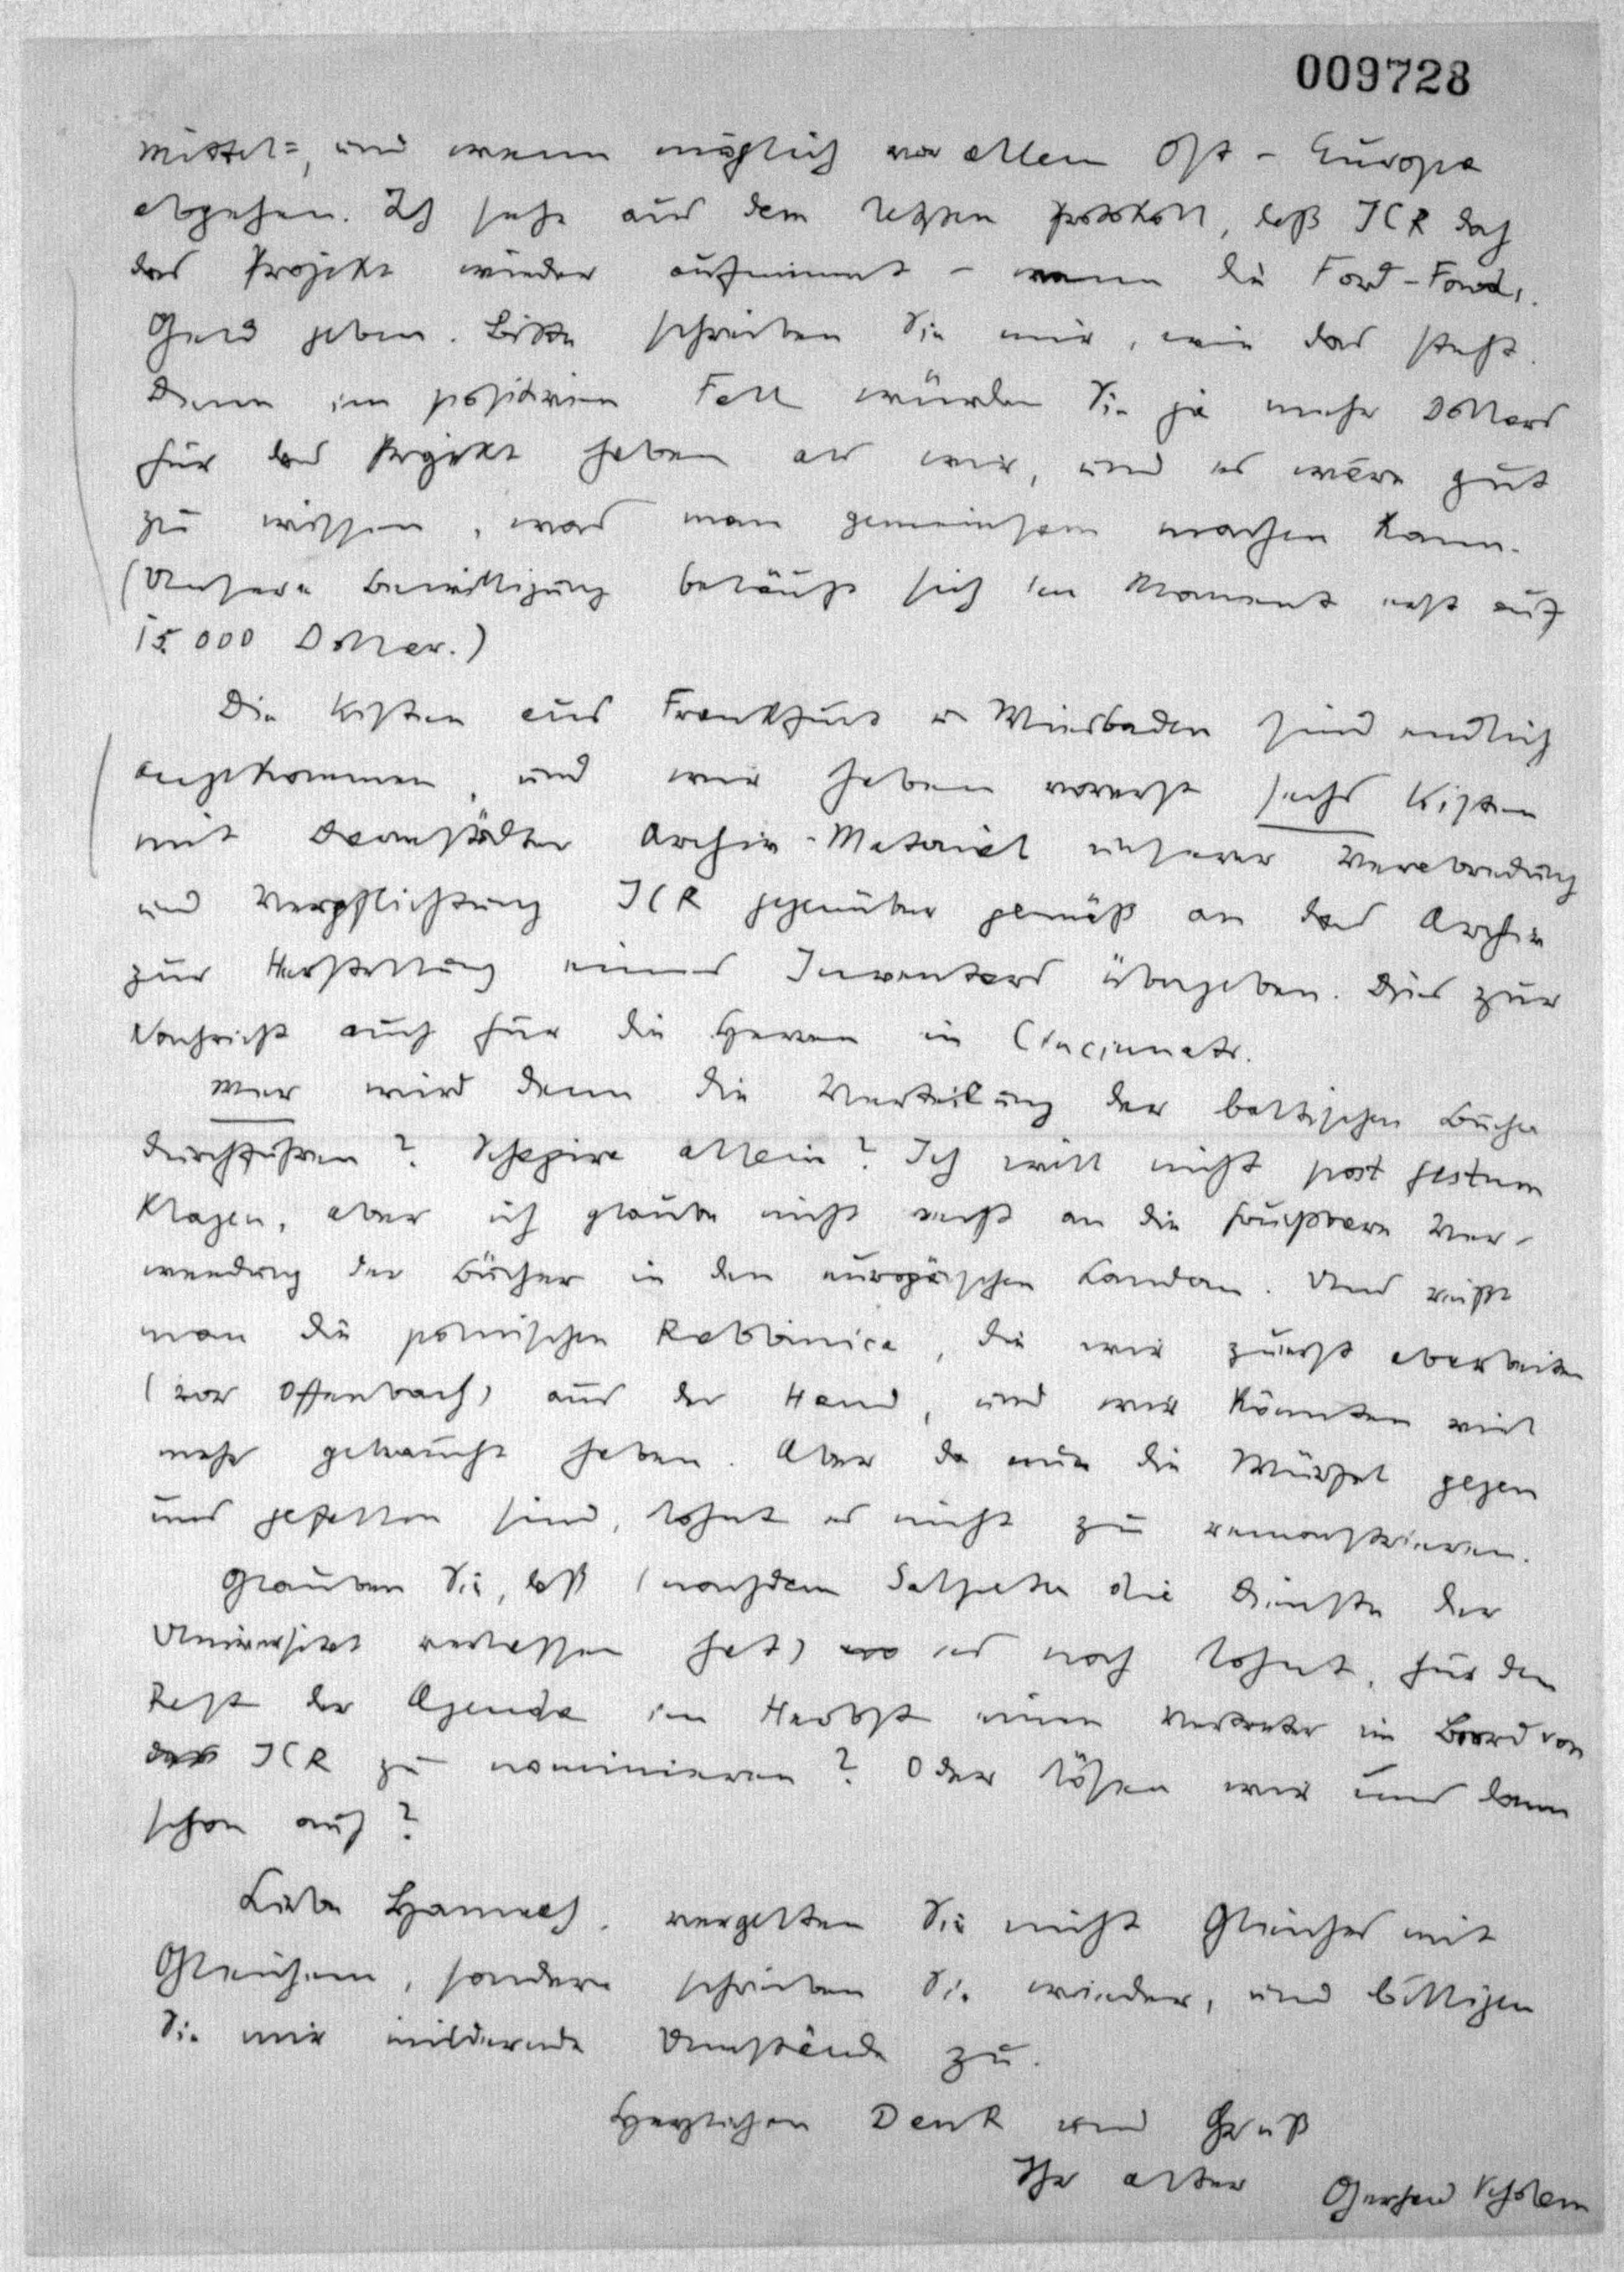 009728
Mittel=, und wenn möglich vor allem Ost-Europa
abgehen. Ich sehe aus dem letzten Protokoll, daß JCR doch
das Projekt wieder aufnimmt - wenn die Ford-Found.
Geld geben. Bitte schreiben Sie mir, wie das steht.
Denn im positiven Fall würden Sie ja mehr Dollars
für das Projekt haben als wir, und es wäre gut
zu wissen, was man gemeinsam machen kann.
(Unsere Bewilligung beläuft sich im Moment erst auf
15.000 Dollar.)
Die Kisten aus Frankfurt u Wiesbaden sind endlich
angekommen, und wir haben vorerst sechs Kisten
mit Darmstädter Archiv-Material unserer Verabredung
und Verpflichtung JCR gegenüber gemäß an das Archiv
zur Herstellung eines Inventars übergeben. Dies zur
Nachricht auch für die Herren in Cincinnati.
Wer wird denn die Verteilung der baltischen Bücher
durchführen? Schapiro allein? Ich will nicht post festum
klagen, aber ich glaube nicht recht an die fruchtbare Ver-
wendung der Bücher in den europäischen Landen. Uns reißt
man die polnischen Rabbinica, die wir zuerst abarbeiten
(vor Offenbach) aus der Hand, und wir könnten viel
mehr gebraucht haben. Aber da nun die Würfel gegen
uns gefallen sind, lohnt es nicht zu remonstrieren.
Glauben Sie, daß (nachdem Salpeter die Dienste der
Universität verlassen hat) es noch lohnt, für den
Rest der Agenda im Herbst einen Vertreter im Board von
der JCR zu nominieren? Oder lösen wir uns dann
schon auf?
Liebe Hannah, vergelten Sie nicht Gleiches mit
Gleichem, sondern schreiben Sie wieder, und billigen
Sie mir mildernde Umstände zu.
Herzlichen Dank und Gruß
Ihr alter Gerhard Scholem